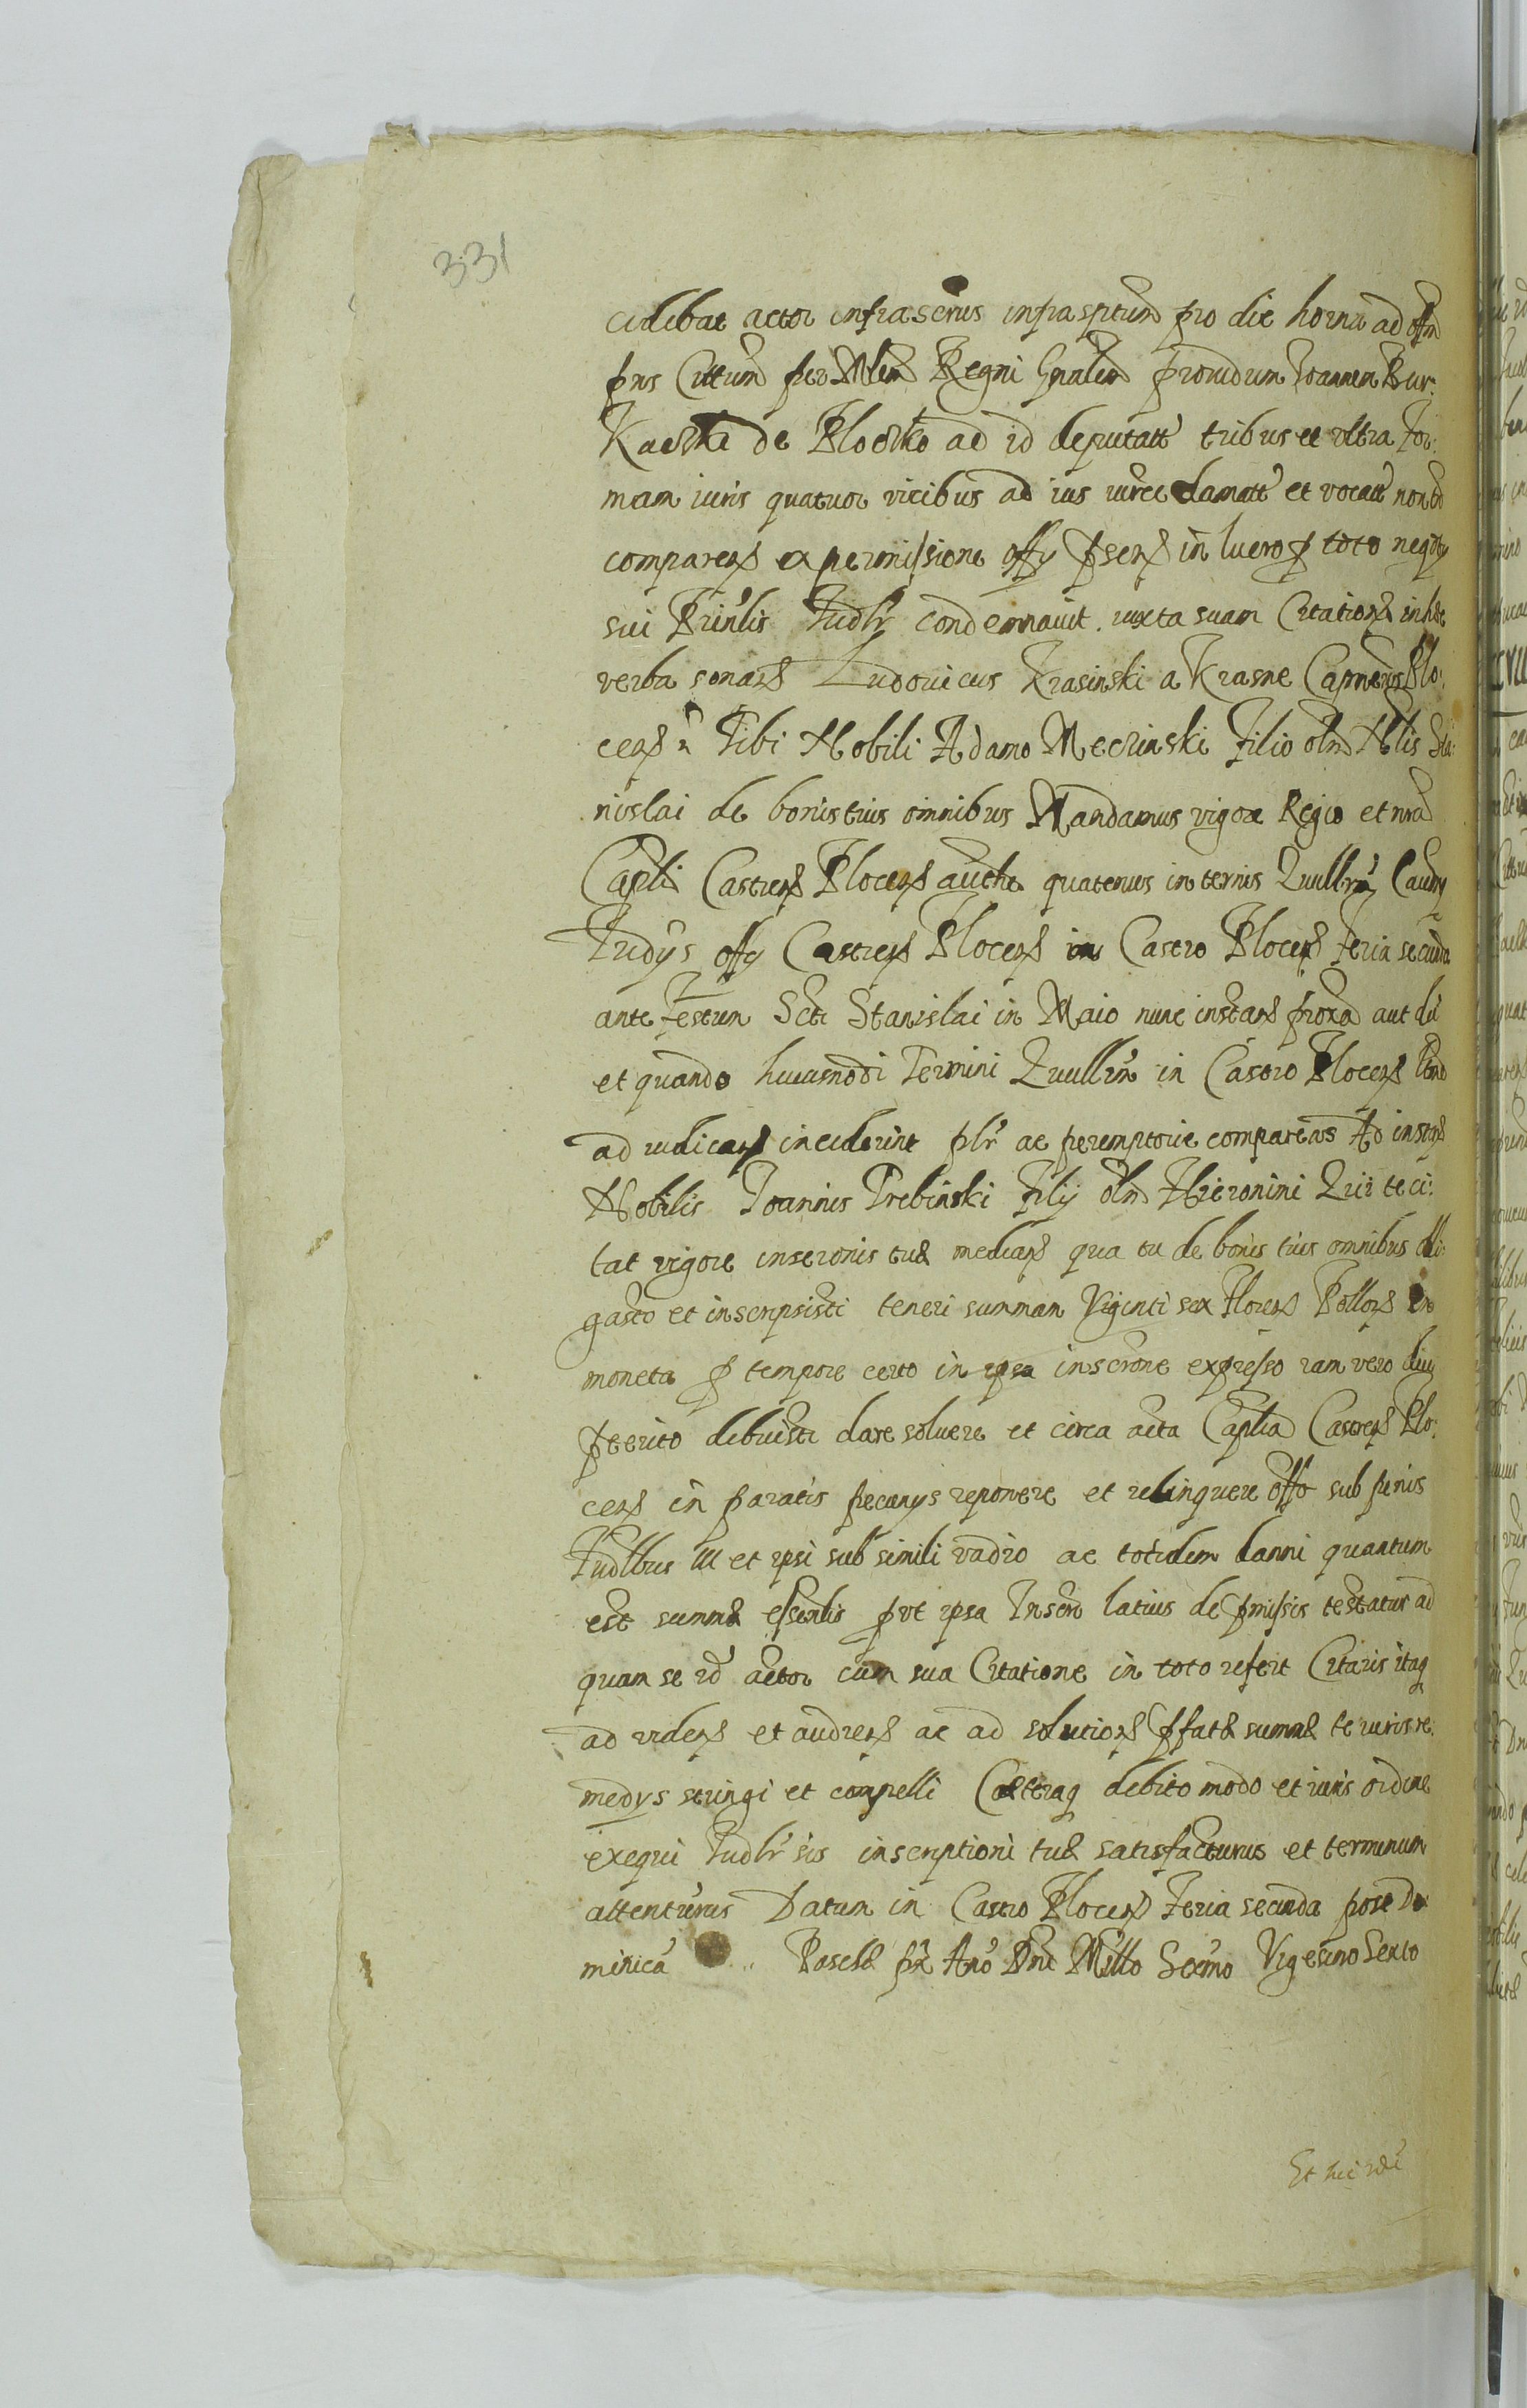 331
cidebat actor infrascrus infrasptum pro die horna ad offm
pns Cittum per Mlem Regni Gnalem prouidum Joannem Bur:
Kaczka de Ploczko ad id deputatt tribus et vltra For:
mam iuris quatuor vicibus ad ius iure clamatt et vocatt non
comparen ex permissione offy psen in lucro p toto negoty
sui Prinlis Judlr condemnauit iuxta suam Citation in hec
verba sonan Ludouicus Krasinski a Krasne Capneus Plo:
cen Tibi Nobili Adamo Meczinski Filio olm Nlis Sta:
nislai de bonis tuis omnibus Mandamus vigore Regio et nra
Caplis Castren Plocen authe quatenus in ternis Quullrum Caurum
Judys offy Castren Plocen in Castro Plocen Feria secunda
ante Festum Scti Stanislai in Maio nunc instan proxa aut du
et quando huiusmodi Termini Quullrum in Castro Plocen
ad iudican inciderint plr ac peremptorie compareas Ad instan
Nobilis Joannis Trebinski Filij olm Hieronimi Qui te ci:
tat vigore inscronis tuæ median qua tu de bonis tuis omnibus obli:
gasti et inscripsisti teneri summam Viginti sex Floren Pollon in
moneta p tempore certo in ipsa inscrone expresso iam vero diu
pterito debuisti dare soluere et circa acta Caplia Castren Plo:
cen in paratis pecunys reponere et relinquere offo sub penis
Judlbus III et ipsi sub simili vadio ac totidem damni quantum
est summæ essenlis put ipsa Inscro latius de pmissis testatur ad
quam se id actor cum sua Citatione in toto refert Citaris itaq
ad viden et audien ac ad solution pfatæ summæ te iuris re:
medys stringi et compelli Cæteraq debito modo et iuris ordine
exequi Judlr sis inscriptioni tuæ satisfacturus et terminum
attenturus Datum in Castro Plocen Feria secunda post Do
minicã Paschæ px Ano Dni Millo Sexmo Vigesimo Sexto